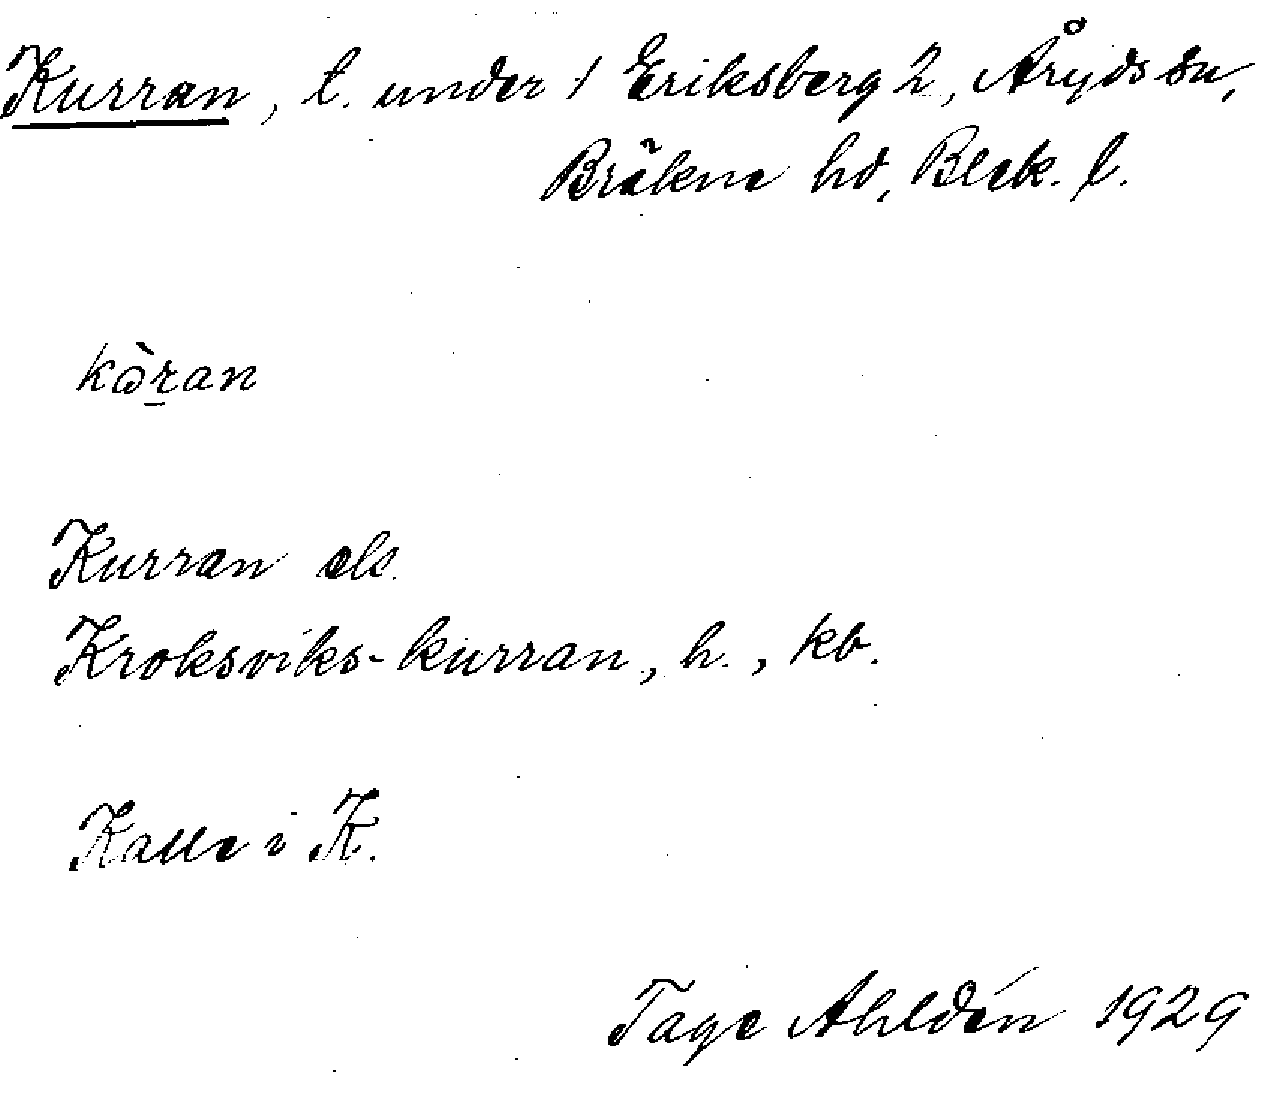 Kurran, t. under 1 Eriksberg 2, Åryds sn,
Bräkne hd, Blek. l.
kòr̲an
Kurran els.
Kroksviks-kurran, h., kb.
Kalle i K.
Tage Ahldén 1929